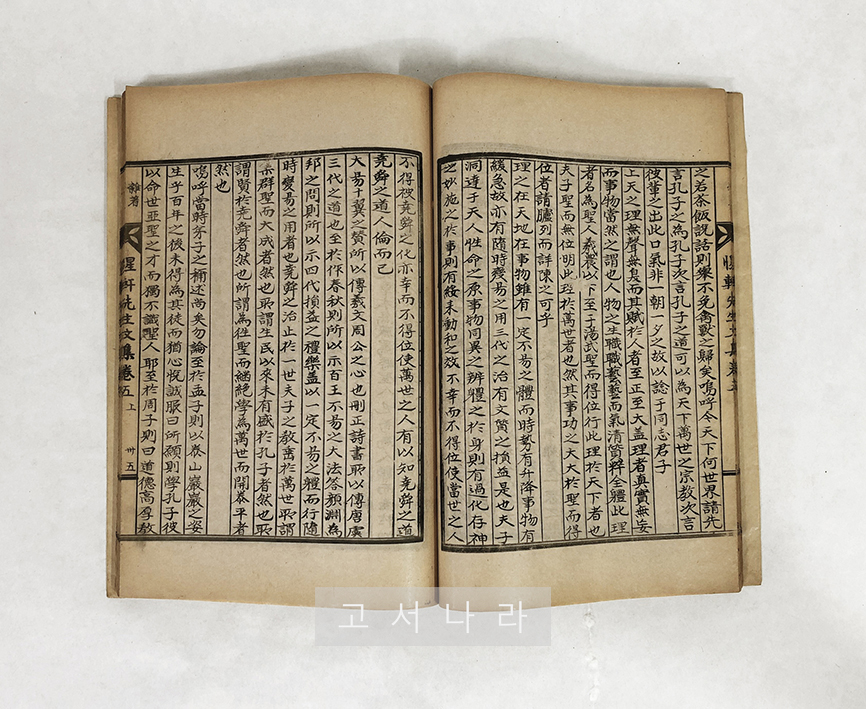 之若茶飯說話則舉不免禽獸之歸矣嗚呼今天下何世界請先
言孔子之爲孔子次言孔子之道可以爲天下萬世之宗敎次言
彼輩之出此口氣非一朝一夕之故以諗于同志君子
上天之理無聲無臭而其賦於人者至正至大盖理者眞實無妄
而事物當然之謂也人物之生職職藝藝而氣淸質粹全體此理
者名爲聖人羲農以下至于湯武聖而得位行此理於天下者也
夫子聖而無位明此理於萬世者也然其事功之大大於聖而得
位者請臚列而詳陳之可乎
理之在天地在事物雖有一定不易之體而時勢有升降事物有
緩急故亦有隨時變易之用三代之治有文質之損益是也夫子
洞達于天人性命之原事物同異之辨體之於身則有過化存神
之妙施之於事則有綏來動和之效不幸而不得位使當世之人
不得被堯舜之化亦幸而不得位使萬世之人有以知堯舜之道
堯舜之道人倫而已
大易十翼之贊所以傳羲文周公之心也刪正詩書所以傳唐虞
三代之道也至於作春秋則所以示百王不易之大法答顔淵爲
邦之問則所以示四代損益之禮樂盖以一定不易之體而行隨
時變易之用者也堯舜之治止於一世夫子之敎垂於萬世所謂
集群聖而大成者然也所謂生民以來未有盛於孔子者然也所
謂賢於堯舜者然也所謂爲徃聖而繼絶學爲萬世而開泰平者
然也
嗚呼當時弟子之稱述尚矣勿論至於孟子則以泰山巖巖之姿
生乎百年之後未得爲其徒而猶心悅誠服曰所願則學孔子彼
以命世亞聖之才而獨不識聖人耶至於周子則曰道德高厚敎
雜著
惺軒先生文集卷五 上
卅五
고서나라